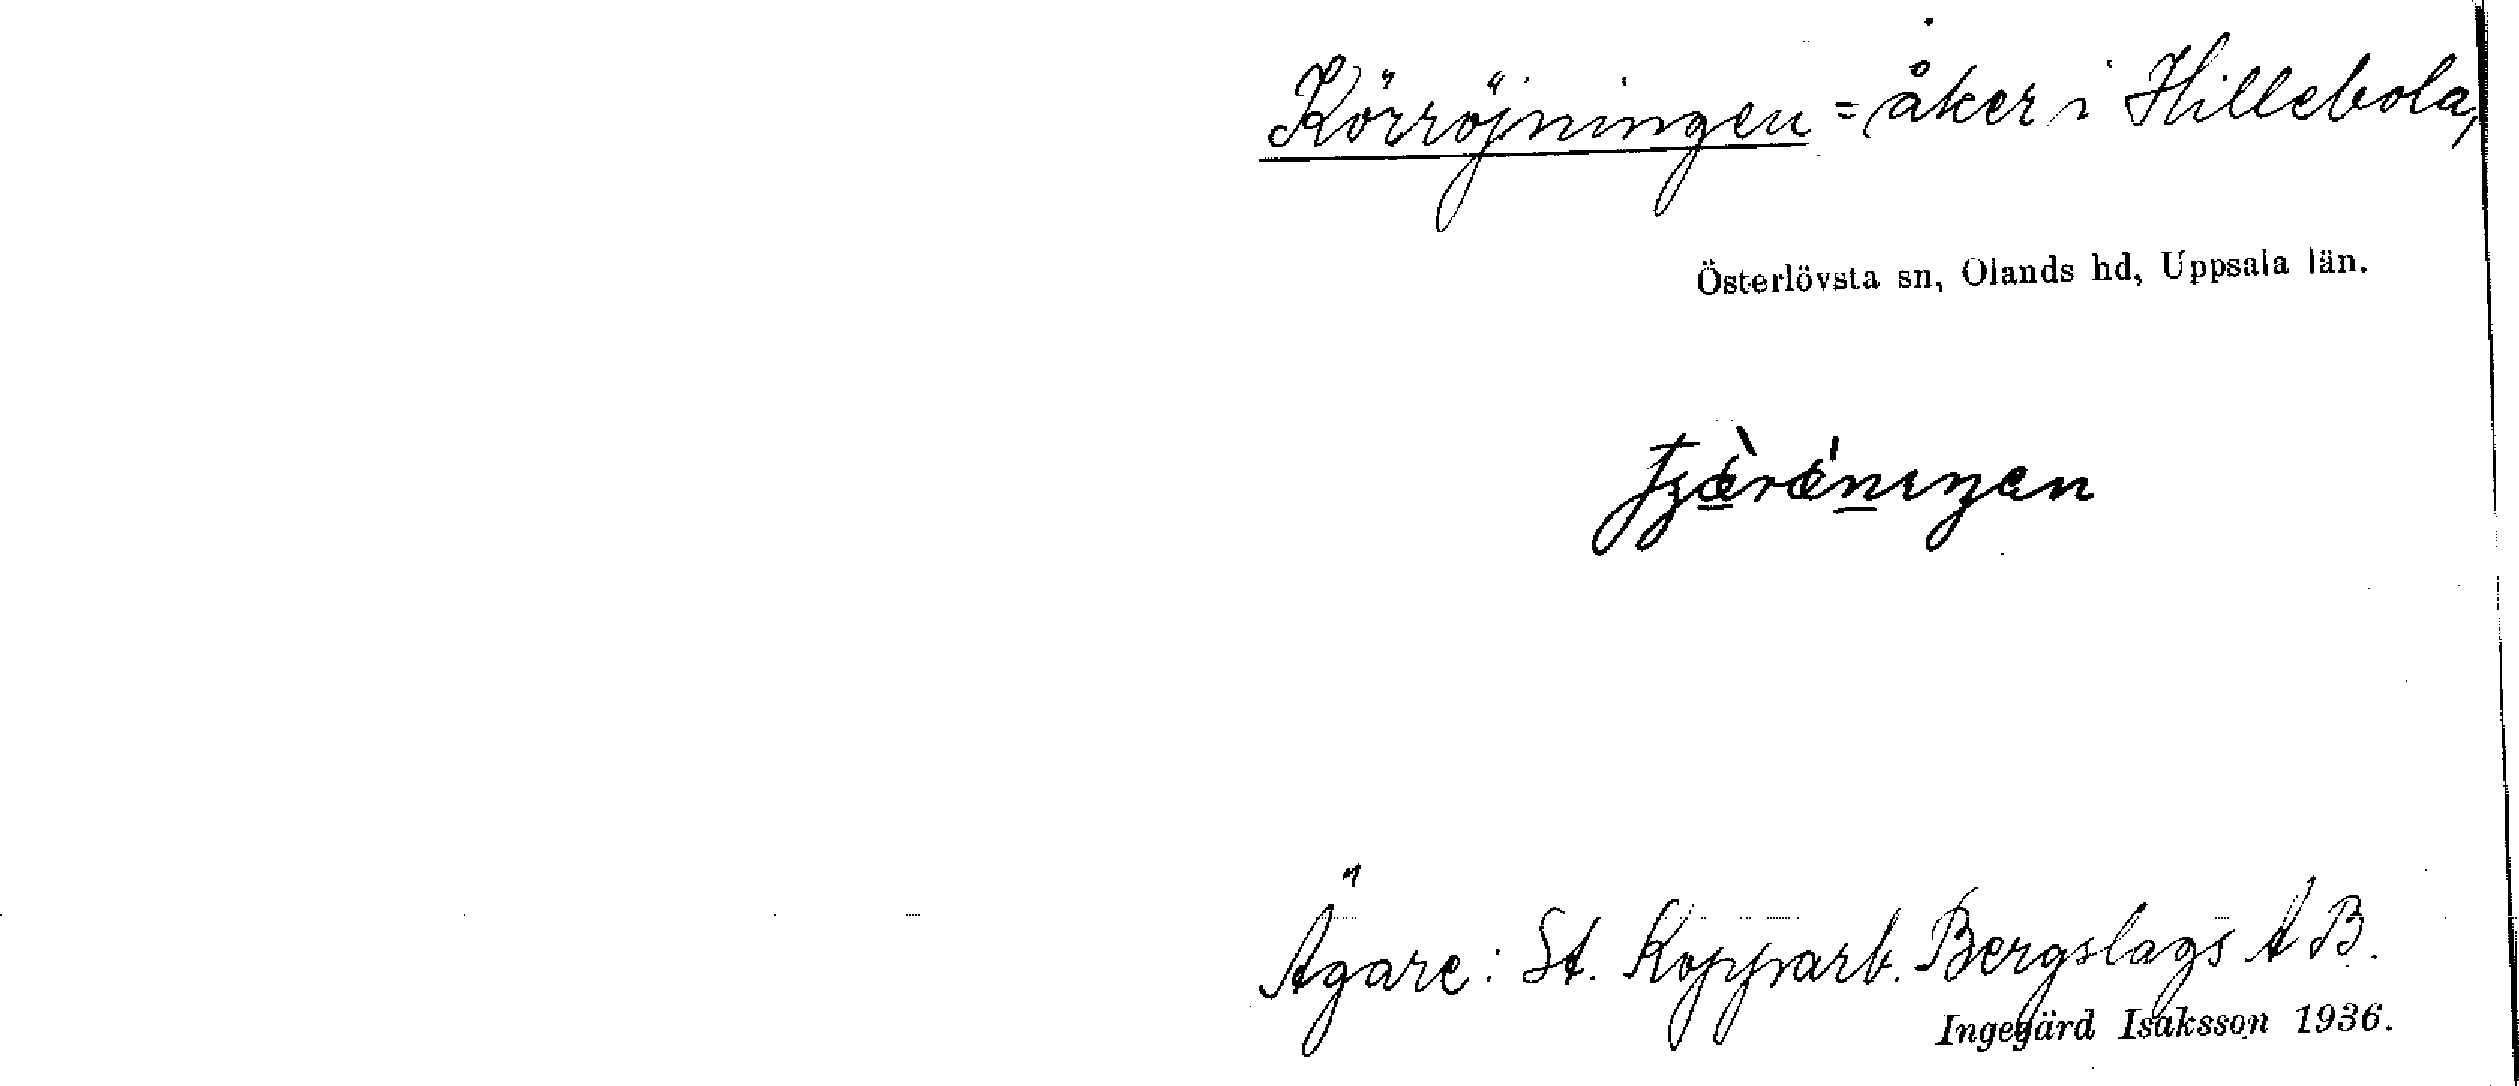 Körröjningen = åker i Hillebola,
Österlövsta sn, Olands hd, Uppsala län.
Ägare: St. Kopparb. Bergslags AB.
Ingegärd Isaksson 1936.